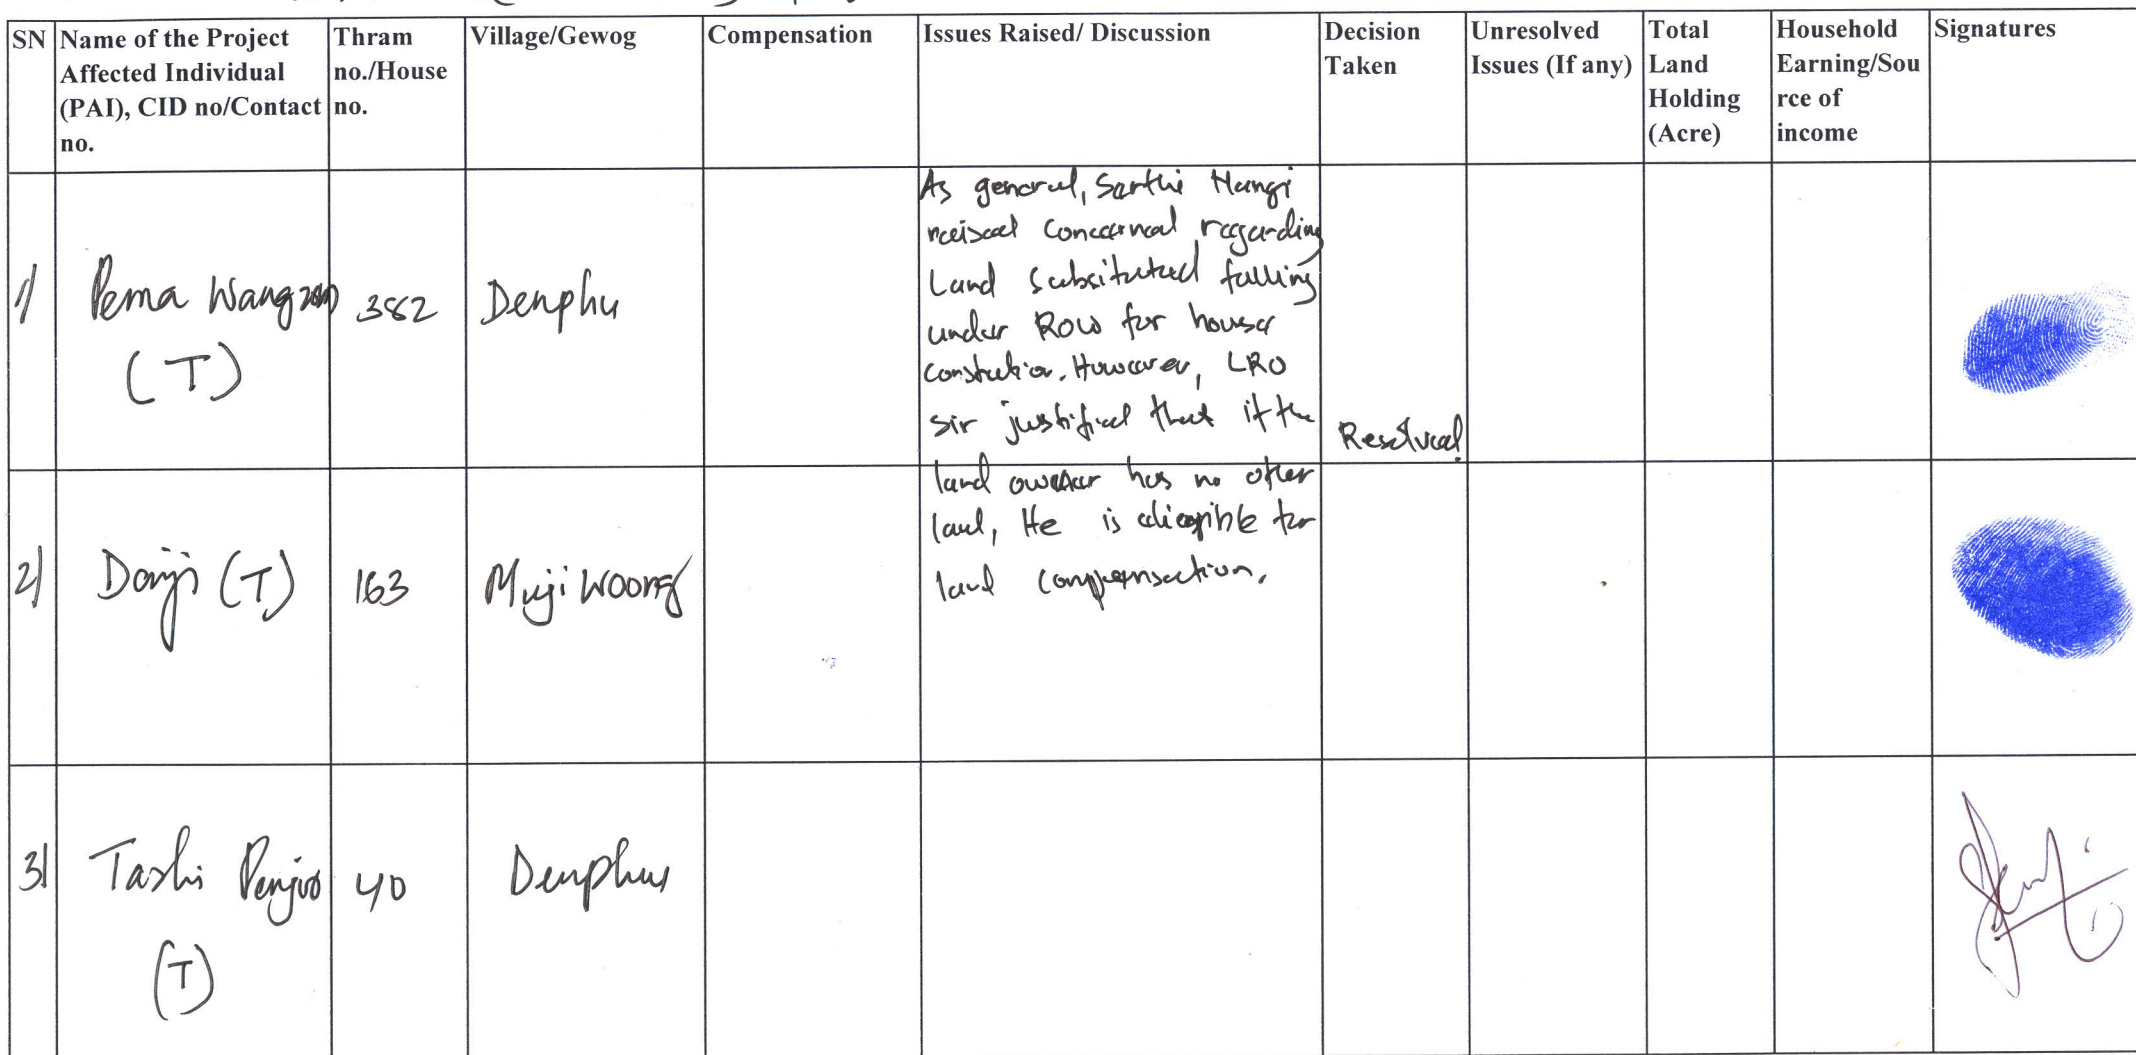 SN Name of the Project Affected Individual (PAI), CID no/Contact no. Thram no./House no. Village/Gewog Compensation Issues Raised/ Discussion Decision Taken Unresolved Issues (If any) Total Land Holding (Acre) Household Earning/Source of income Signatures
1/ Pema Wangzom (T) 382 Denphu
As general, Sarthi Mangi
raised Concerned regarding
Land Subsituted falling
under ROW for house
constuction. However, LRO
sir justified that if the
Resolved
land owner has no other
land, He is eligible for
land compensation.
2/ Dorji (T) 163 Muji Woong
3/ Tashi Penjor (T) 40 Denphu